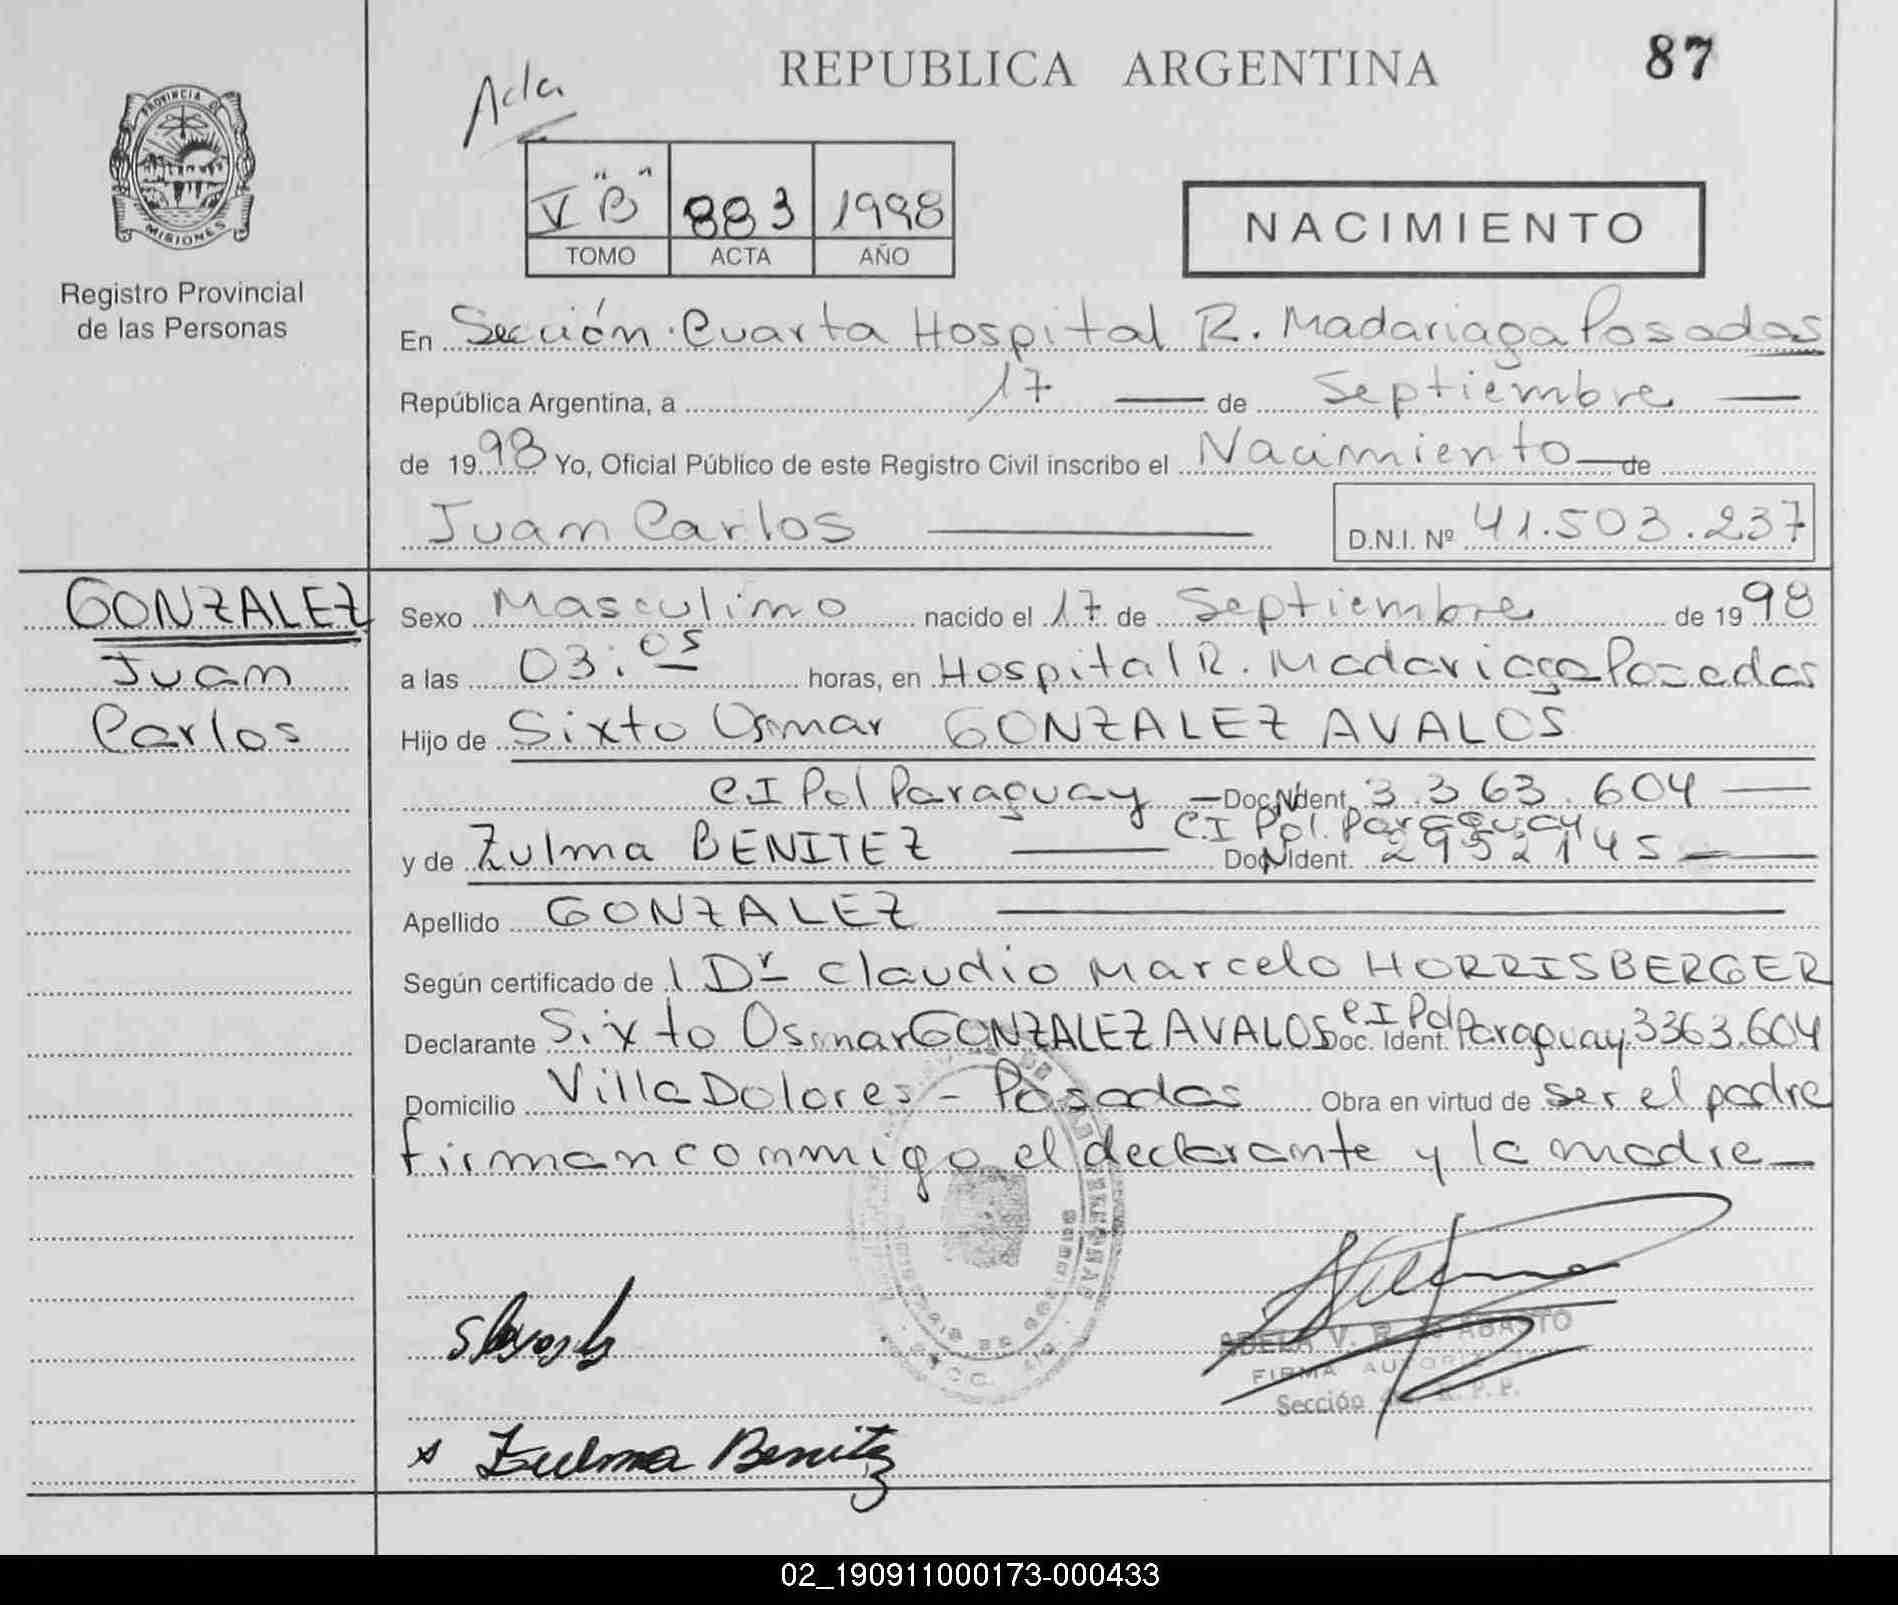 REPUBLICA ARGENTINA
87
Acta
PROVINCIA DE
MISIONES
Registro Provincial
de las Personas
V "B" 883 1998
TOMO ACTA AÑO
NACIMIENTO
En Sección Cuarta Hospital R. Madariaga Posadas
República Argentina, a 17 de Septiembre
de 1998 Yo, Oficial Público de este Registro Civil inscribo el Nacimiento de
Juan Carlos D.N.I. Nº 41.503.237
GONZALEZ
Juan
Carlos
Sexo Masculino nacido el 17 de Septiembre de 1998
a las 03:05 horas, en Hospital R. Madariaga Posadas
Hijo de Sixto Osmar GONZALEZ AVALOS
CI Pol Paraguay Doc. Ident. 3.363.604
CI Pol. Paraguay
y de Zulma BENITEZ Doc. Ident. 2952145
Apellido GONZALEZ
Según certificado de l Dr Claudio Marcelo HORRISBERGER
Declarante Sixto Osmar GONZALEZ AVALOS Doc. Ident. CI Pol Paraguay 3363.604
Domicilio Villa Dolores - Posadas Obra en virtud de ser el padre
firman conmigo el declarante y la madre
ADELA V. ABASTO
FIRMA
Sección R. P. P.
x Zulma Benitez
02_190911000173-000433